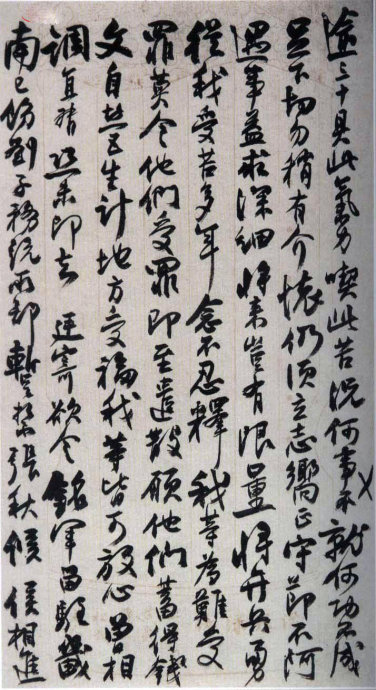 途三十具此氣力喫此苦況何事不就何功不成
足下切勿稍有介懷仍須立志嚮正守節不阿
遇事益求深細將來豈有限量將弁兵勇
從我受苦多年念不忍釋我輩為難受
罪莫令他們受罪即至遣散願他們蓄得錢
文自營生計地方受福我等皆可放心曾相
調直督恐未即去廷寄欲令銘軍留駐畿
南已飭劉子務統兩部暫紮張秋候侯相進